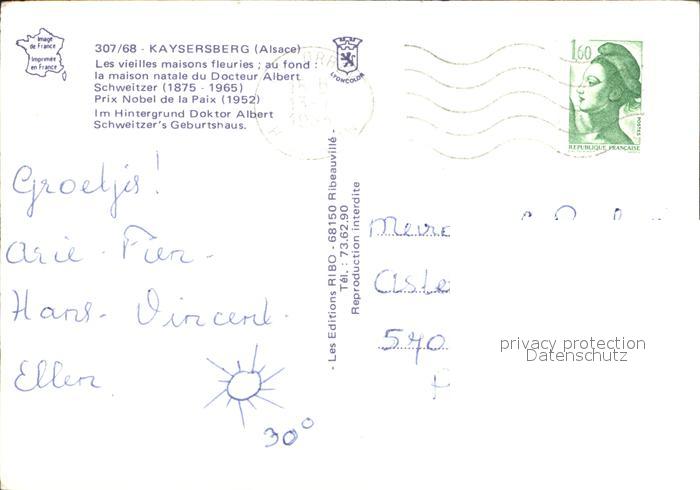 Image
de France
Imprimée
en France
307/68 - KAYSERSBERG (Alsace)
Les vieilles maisons fleuries ; au fond :
la maison natale du Docteur Albert
Schweitzer (1875 - 1965)
Prix Nobel de la Paix (1952)
Im Hintergrund Doktor Albert
Schweitzer's Geburtshaus.
LYONCOLOR
1,60
POSTES
REPUBLIQUE FRANÇAISE
Groetjes!
Arie - Fien -
Hans - Vincent -
Ellen
30°
- Les Editions RIBO - 68150 Ribeauvillé -
Tél. : 73.62.90
Reproduction interdite
570
privacy protection
Datenschutz